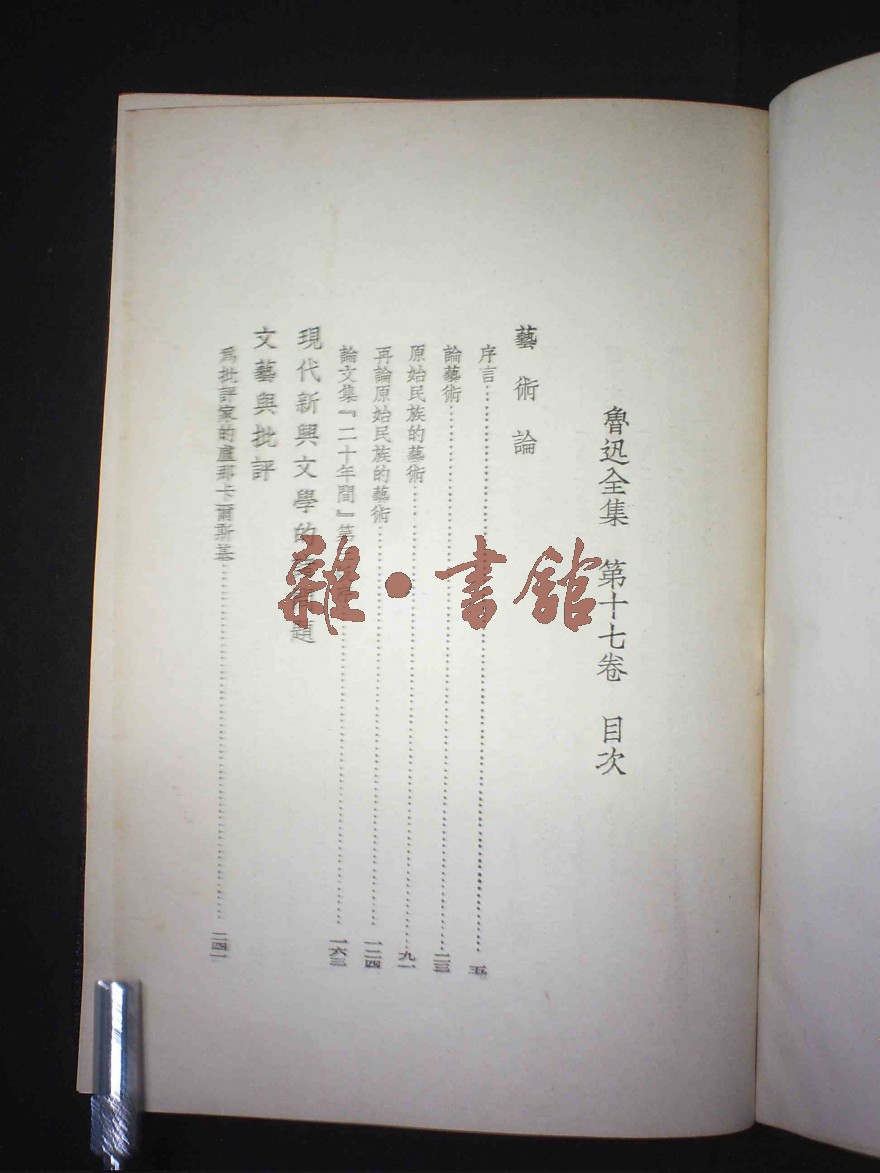 魯迅全集 第十七卷 目次
藝術論
序言……五
論藝術……二三
原始民族的藝術……九一
再論原始民族的藝術……一二四
論文集『二十年間』第……一六三
現代新興文學的題
文藝與批評
爲批評家的盧那卡爾斯基……二四一
雜・書館